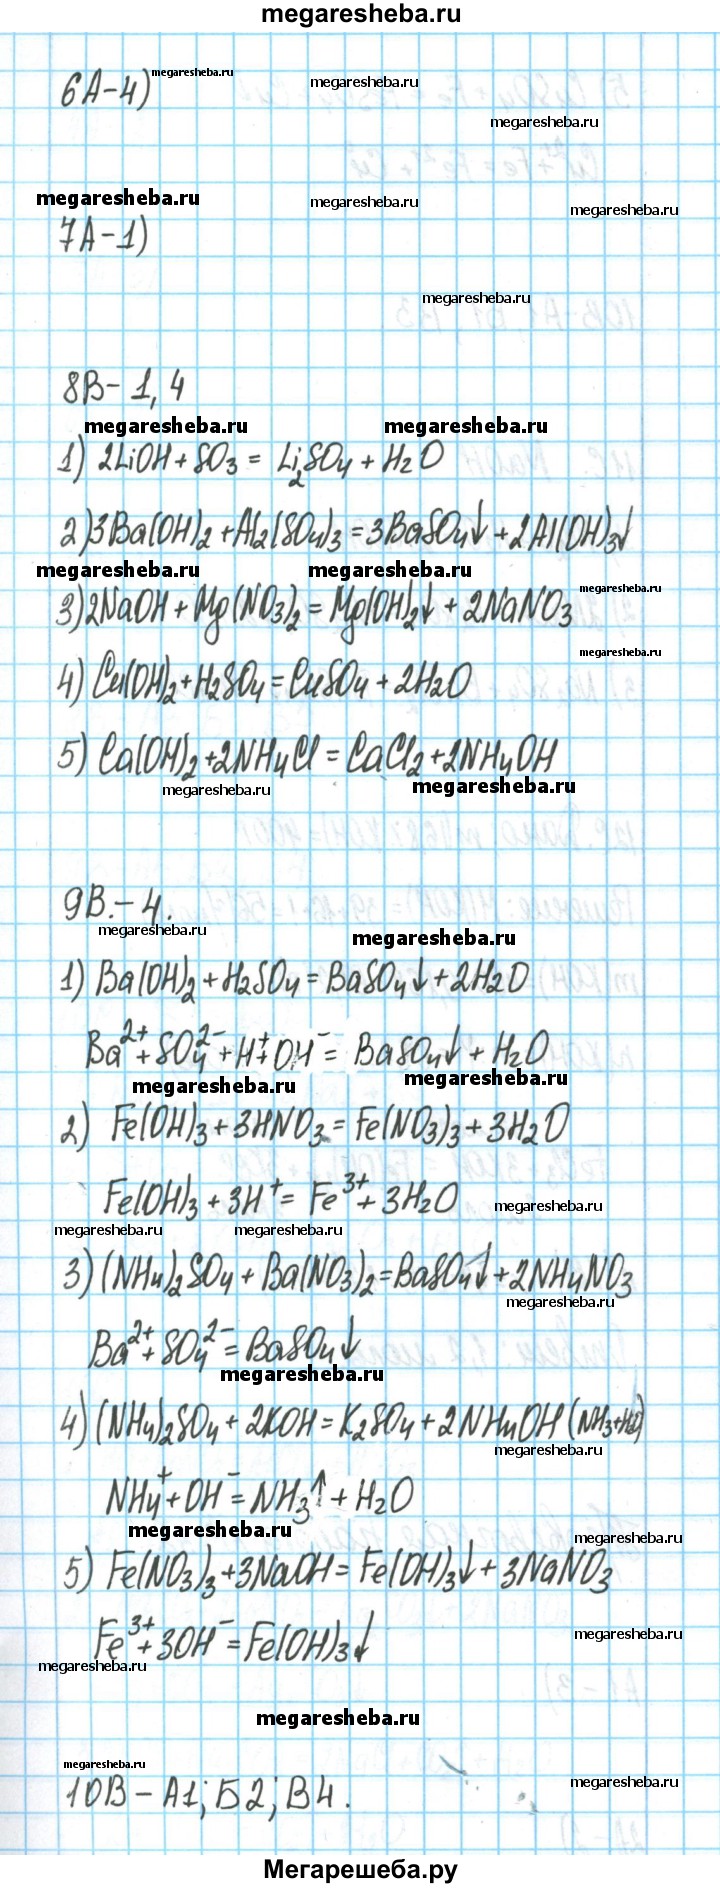 megaresheba.ru
6А-4)
7А-1)
8В-1,4
1) 2LiOH + SO3 = Li2SO4 + H2O
2) 3Ba(OH)2 + Al2(SO4)3 = 3BaSO4↓ + 2Al(OH)3↓
3) 2NaOH + Mg(NO3)2 = Mg(OH)2↓ + 2NaNO3
4) Cu(OH)2 + H2SO4 = CuSO4 + 2H2O
5) Ca(OH)2 + 2NH4Cl = CaCl2 + 2NH4OH
9В.-4.
1) Ba(OH)2 + H2SO4 = BaSO4↓ + 2H2O
Ba²⁺ + SO4²⁻ + H⁺ + OH⁻ = BaSO4↓ + H2O
2) Fe(OH)3 + 3HNO3 = Fe(NO3)3 + 3H2O
Fe(OH)3 + 3H⁺ = Fe³⁺ + 3H2O
3) (NH4)2SO4 + Ba(NO3)2 = BaSO4↓ + 2NH4NO3
Ba²⁺ + SO4²⁻ = BaSO4↓
4) (NH4)2SO4 + 2KOH = K2SO4 + 2NH4OH
NH4⁺ + OH⁻ = NH3↑ + H2O
5) Fe(NO3)3 + 3NaOH = Fe(OH)3↓ + 3NaNO3
Fe³⁺ + 3OH⁻ = Fe(OH)3↓
10В - А1; Б2; В4.
Мегарешеба.ру